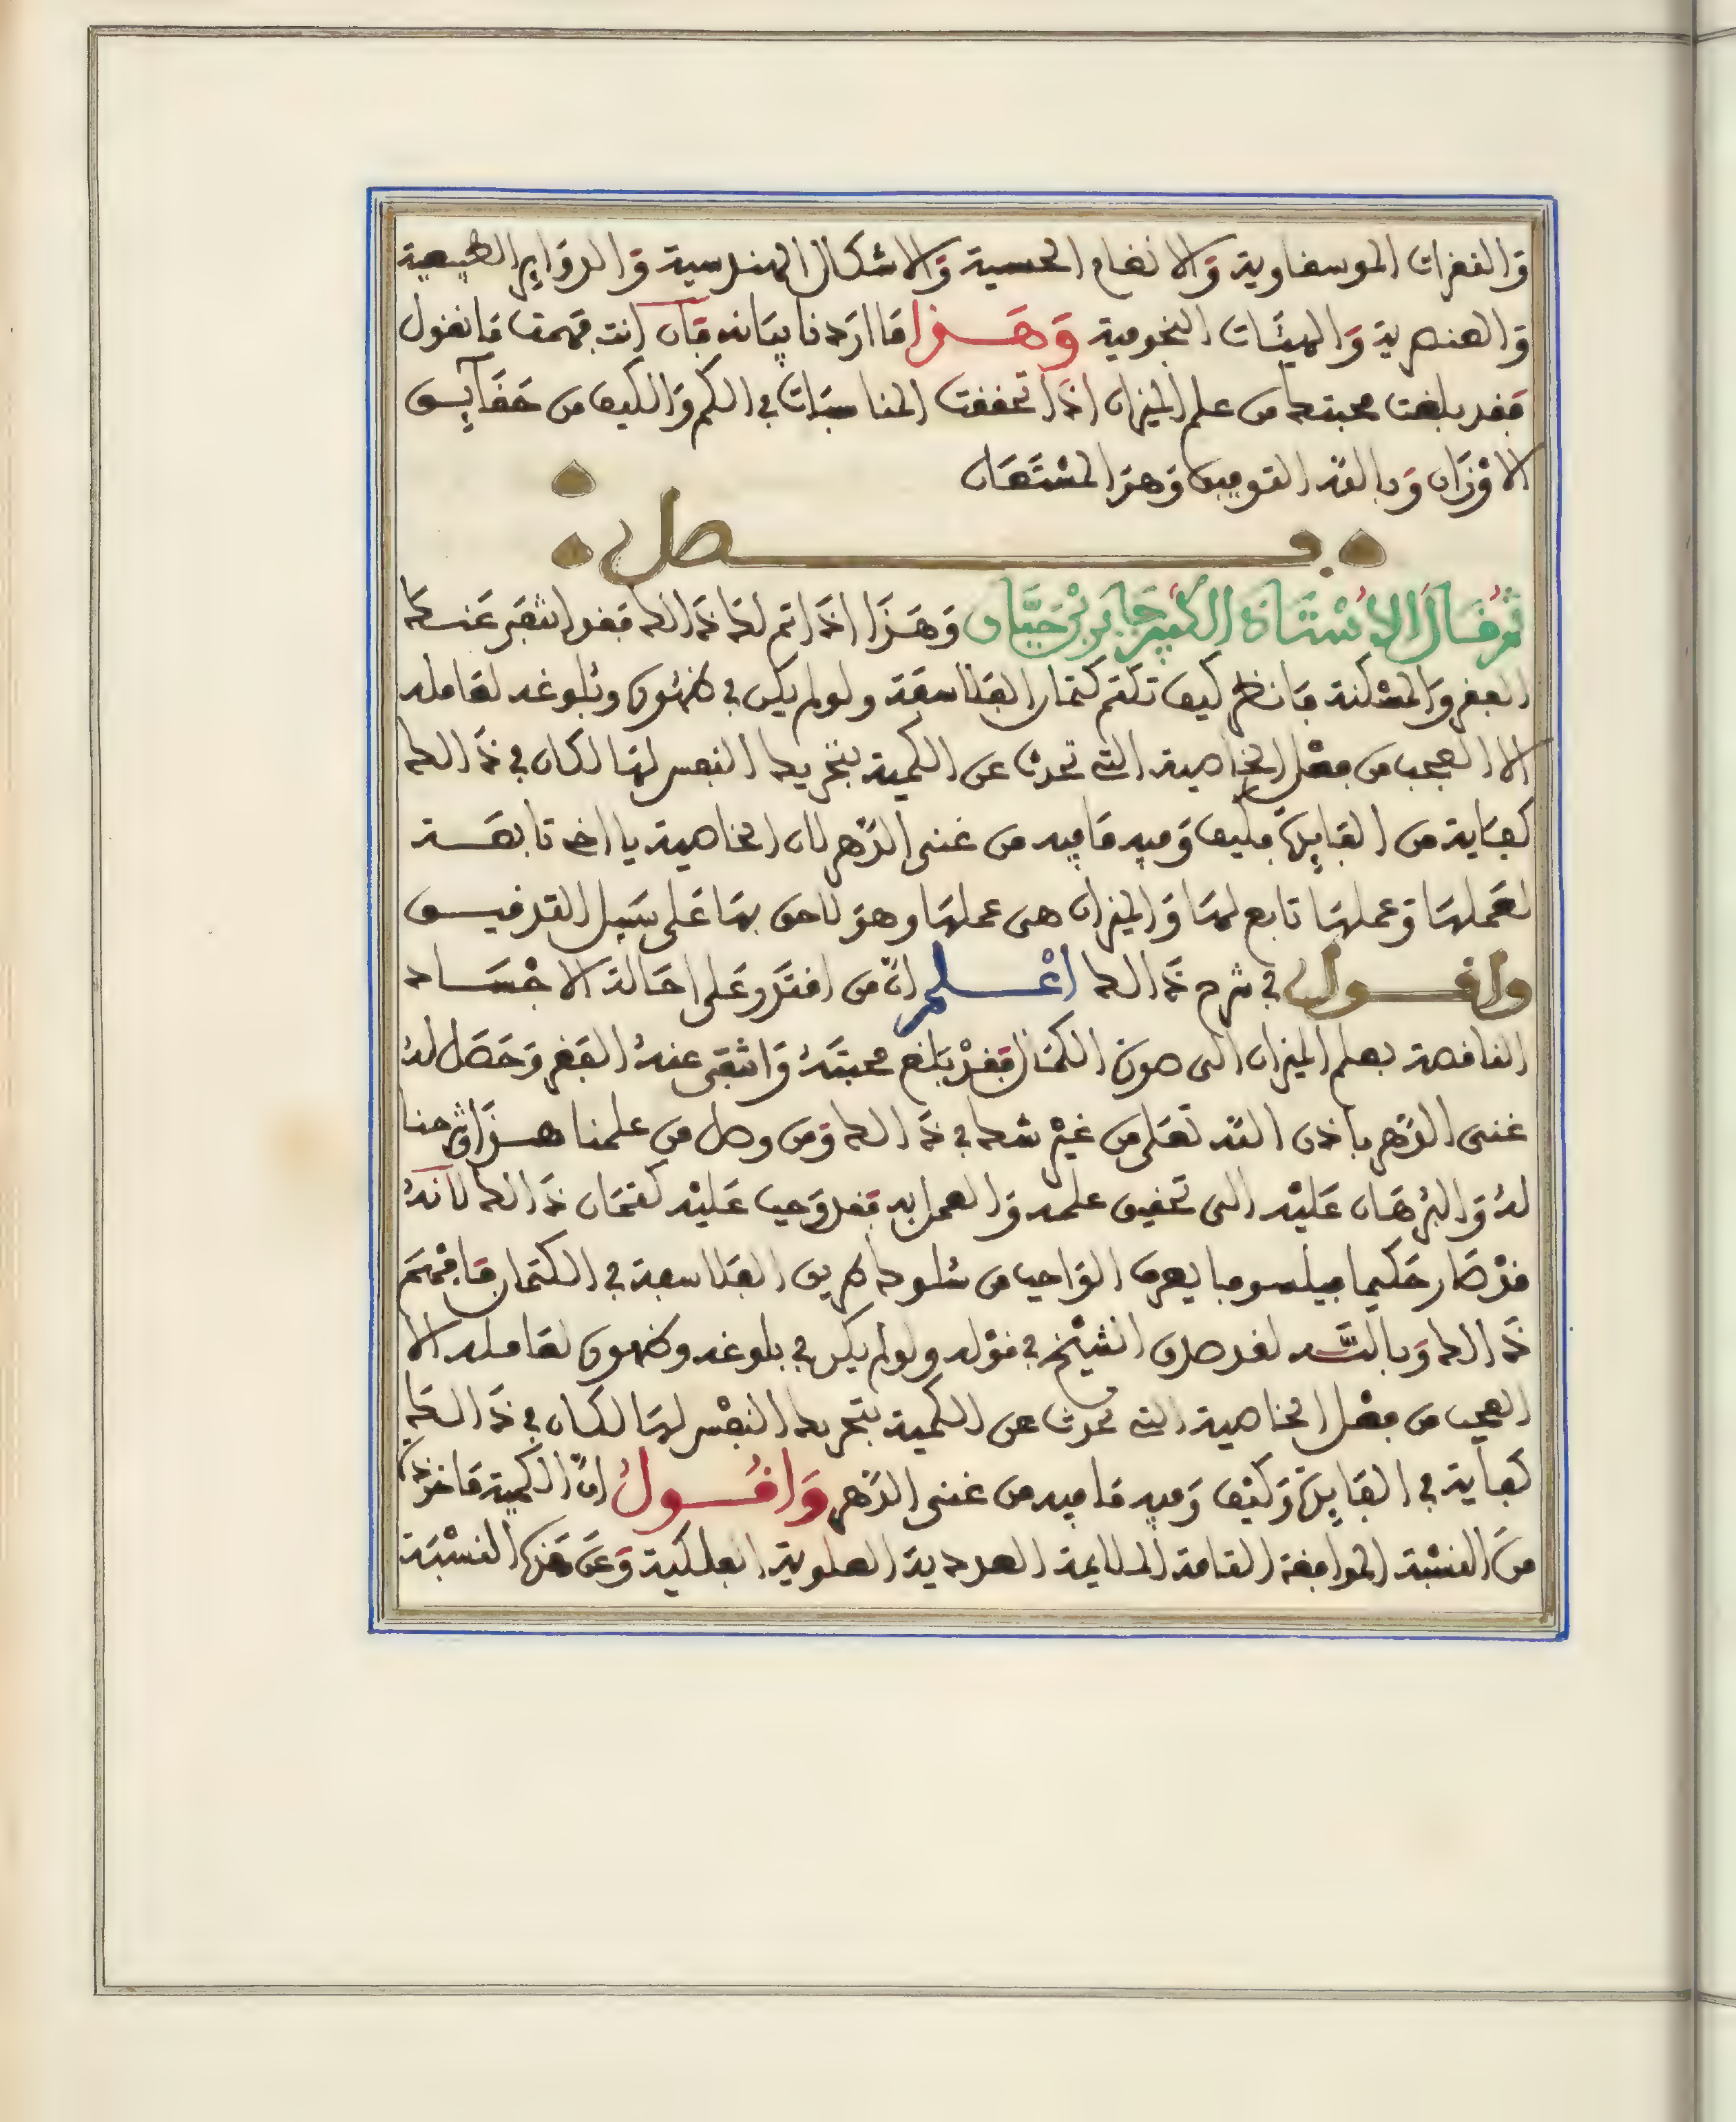 وَالنقرات الموسقاوية وَالانغام الحسية وَالاشكال الهندسية وَالدوَاير الطبيعية
وَالعنصرية وَالهيئَات النجومية وَهَـــذا مَا ارَدنا بيَانه فَان انت فهمت مَا نقول
فقد بلغت محبتك من علم الميزان اذَا تحققت المناسبَات في الكم وَالكيف من حقَايـــق
الاوْزَان وَبالله التوفيق وَهوَ المسْتَعَان
فـــــصل
ثم قَالَ الاسْتَاذ الكبير جَابر بْن حَيَّان وَهَـذَا اذَا تم لك ذَالك فقد انتفَى عَنــك
الفقر وَالمسْكنة فَانظر كيف تكتم كتمان الفلاسفَة ولو لم يكن في ظهُوره وبُلوغه لعَامله
الا العجب من فعْل الخاصية التي تحدث عن الكمية بتحريك النفس لهَا لكان في ذَالك
كفَاية من الفَايدة فكيف وَفيه مَا فيه من غنى الدَّهر لان الخاصية يا اخي تابعَـــة
لعَملهَا وَعملهَا تابع لهَا وَالميزان هى عملهَا وهوَ لاحق بهَا عَلى سَبيل التدقيـــق
واقـــول في شرح ذَالك اعْـــلم انّ من اقتدَر عَلى احَالة الاجْسَـــاد
الناقصة بعلم الميزان الى صورَة الكمَال فقدْ بَلغ محبتَهُ وَانتفى عنهُ الفَقر وَحَصَل لهُ
غنى الدَّهر باذن الله تعَلى من غيْر شك في ذَالك وَمن وصل من علمنا هـــذَا وشرحنا
لهُ وَالبُرهَان عَليْه الى تحقيق علمه وَالعمل به فقد وَجب عَليْه كتمَان ذَالك لاَنهُ
قدْ صَار حَكيما فيلسوفا يعرف الوَاجب من سُلوك طريق الفلاسفة في الكتمان فَافْهَم
ذَالك وَبالله لقد صدق الشيْخ في قوْله ولو لم يكن في بلوغه وظهوره لعَامله الا
العجب من فعْل الخاصية التي تحدث عن الكمية بتحريك النفْس لهَا لكان في ذَالك
كفاية في الفَايدة وَكيْف وَفيه مَا فيه من غنى الدَّهر وَاقُـــولُ انَّ الكمية مَاخوذة
منَ النسْبة الموافقة التامة الملايمة العددية العلوية الفلكية وَعَن هَذه النسْبَة